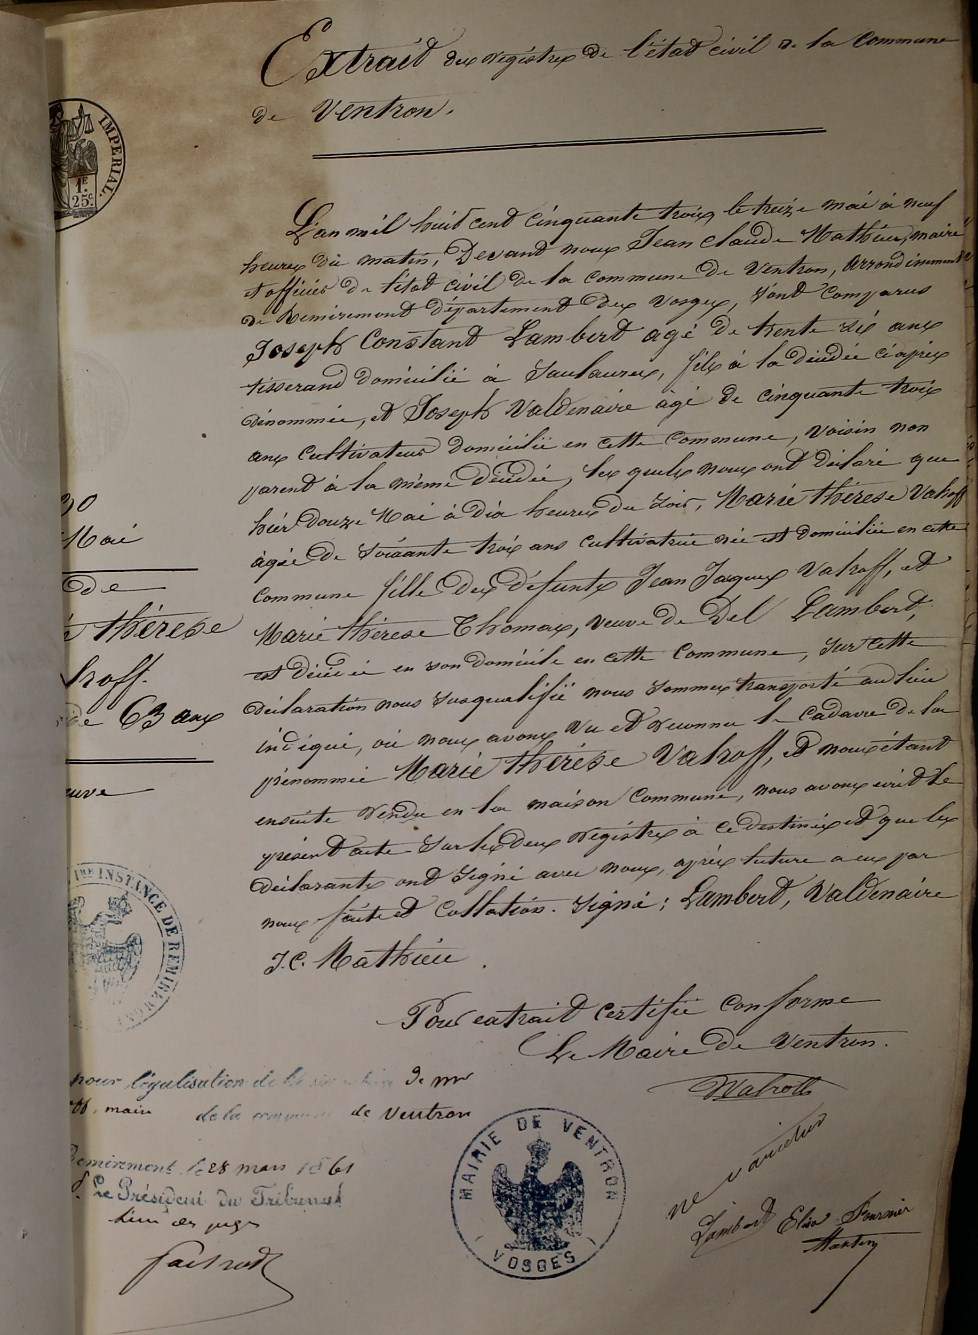 Extrait des registres de l'état civil de la commune
de Ventron.
IMPERIAL.
1F.
25C
L'an mil huit cent cinquante trois, le treize mai à neuf
heures du matin, Devant nous Jean Claude Mathieu, maire
et officier de l'état civil de la commune de Ventron, Arrondissement
de Remiremont département des Vosges, sont comparus
Joseph Constant Lambert agé de trente six ans
tisserand domicilié à Saulxures, fils à la décédée ci après
dénommée, et Joseph Valdenaire agé de cinquante trois
ans cultivateur domicilié en cette commune, voisin non
parent à la même décédée, les quels nous ont déclaré que
hier douze Mai à dix heures du soir, Marie thérèse Vahoff
agée de soixante trois ans cultivatrice née et domiciliée en cette
commune fille des défunts Jean Jacques Vahoff, et
Marie thérese Thomas, veuve de Del Lambert,
est décédée en son domicile en cette commune, sur cette
déclaration nous susqualifié nous sommes transporté au lieu
indiqué, où nous avons vu et reconnu le cadavre de la
prénommée Marie thérèse Vahoff, et nous étant
ensuite rendu en la maison commune, nous avons écrit le
présent acte sur les deux registres à ce destinés et que les
déclarants ont signé avec nous, après lecture a eux par
nous faite et collation. Signé: Lambert, Valdenaire
J.C. Mathieu.
30
Mai
de
thérèse
hoff.
de 63 ans
euve
1ME INSTANCE DE REMIREMONT
Pour extrait certifié conforme
Le Maire de Ventron.
pour légalisation de la de mr
maire de la commune de Ventron
Remiremont, le 28 mars 1861
Le Président du Tribunal
l'un des juges
MAIRIE DE VENTRON
(VOSGES)
ne varietur
Lambert Elisa Fournier
Martin